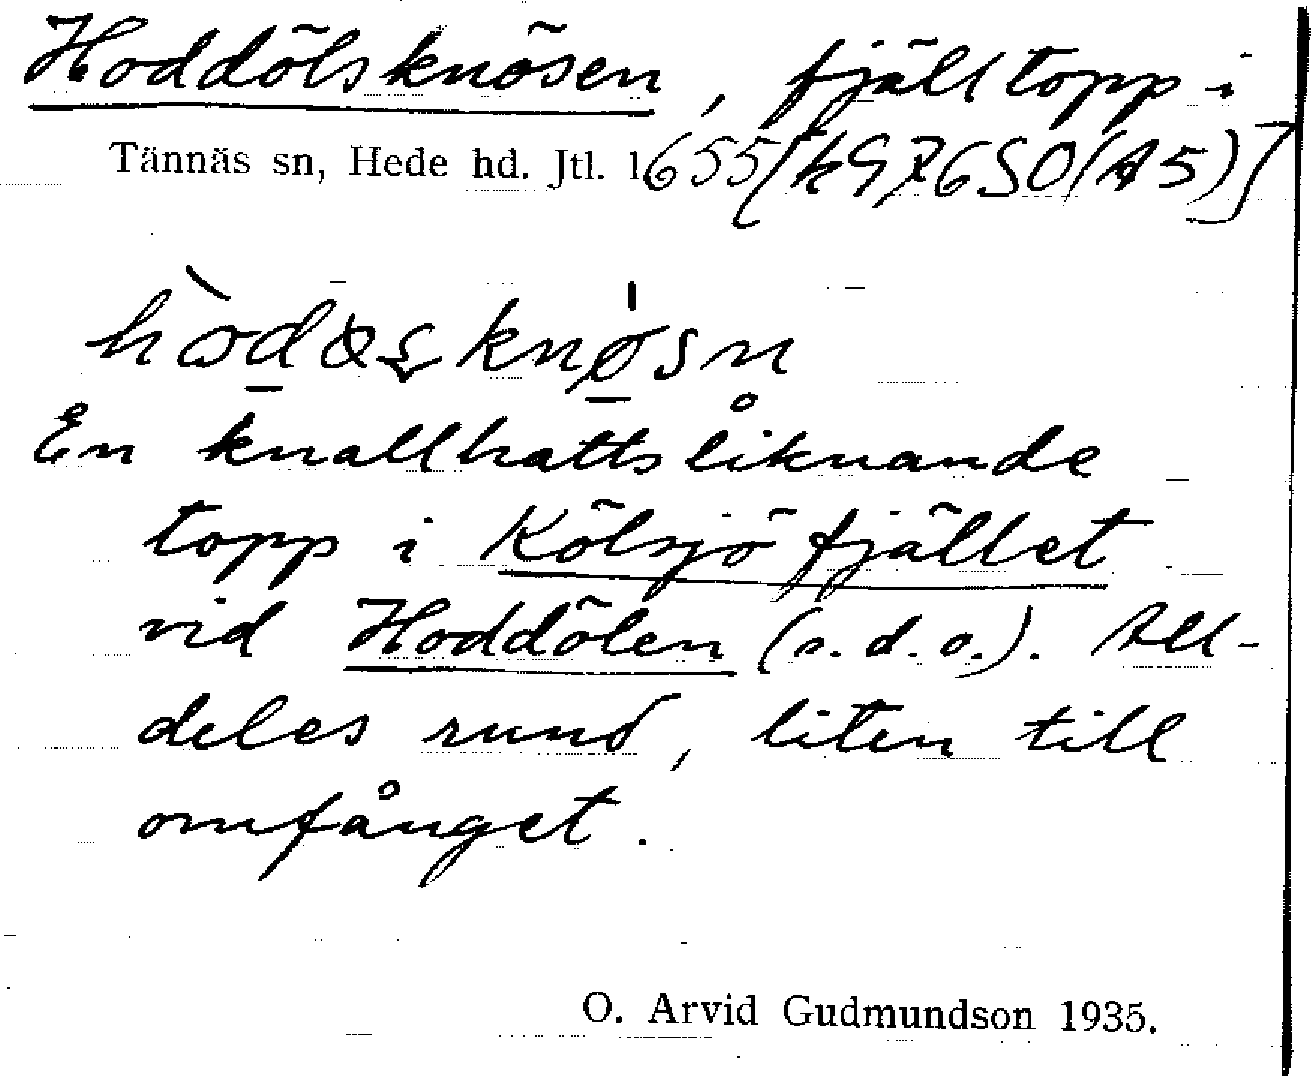 Hoddölsknösen, fjälltopp i
Tännäs sn, Hede hd. Jtl. 1655 [k97650(A5)]
En knallhattsliknande
topp i Kölsjöfjället
vid Hoddölen (s.d.o.). All-
deles rund, liten till
omfånget.
O. Arvid Gudmundson 1935.